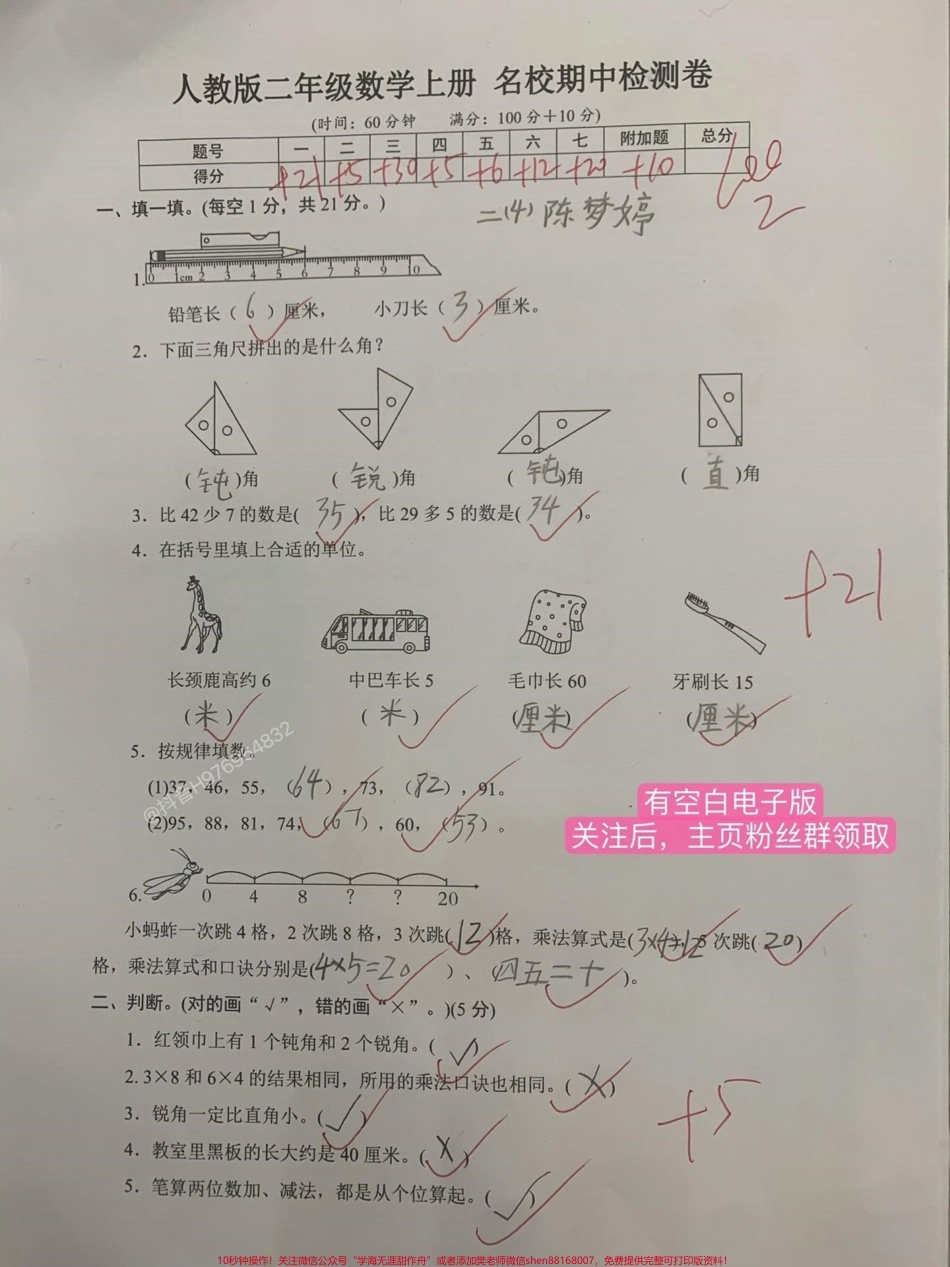 人教版二年级数学上册 名校期中检测卷
(时间：60分钟 满分：100分＋10分)
题号 一 二 三 四 五 六 七 附加题 总分
得分 +21 +5 +30 +5 +6 +12 +20 +10
一、填一填。(每空1分，共21分。)
二(4) 陈梦婷
1. 0 1cm 2 3 4 5 6 7 8 9 10
铅笔长（6）厘米， 小刀长（3）厘米。
2．下面三角尺拼出的是什么角？
(钝)角 (锐)角 (钝)角 (直)角
3．比42少7的数是(35)，比29多5的数是(34)。
4．在括号里填上合适的单位。
+21
长颈鹿高约6 中巴车长5 毛巾长60 牙刷长15
(米) (米) (厘米) (厘米)
@抖音H976954832
5．按规律填数。
(1)37，46，55，（64），73，（82），91。
(2)95，88，81，74，（67），60，（53）。
有空白电子版
关注后，主页粉丝群领取
6. 0 4 8 ? ? 20
小蚂蚱一次跳4格，2次跳8格，3次跳(12)格，乘法算式是(3×4=12)，5次跳(20)
格，乘法算式和口诀分别是(4×5=20)、(四五二十)。
二、判断。(对的画“√”，错的画“×”。)(5分)
1．红领巾上有1个钝角和2个锐角。(√)
2.3×8和6×4的结果相同，所用的乘法口诀也相同。(×)
3．锐角一定比直角小。(√)
+5
4．教室里黑板的长大约是40厘米。(×)
5．笔算两位数加、减法，都是从个位算起。(√)
10秒钟操作！关注微信公众号“学海无涯甜作舟”或者添加樊老师微信shen88168007，免费提供完整可打印版资料！